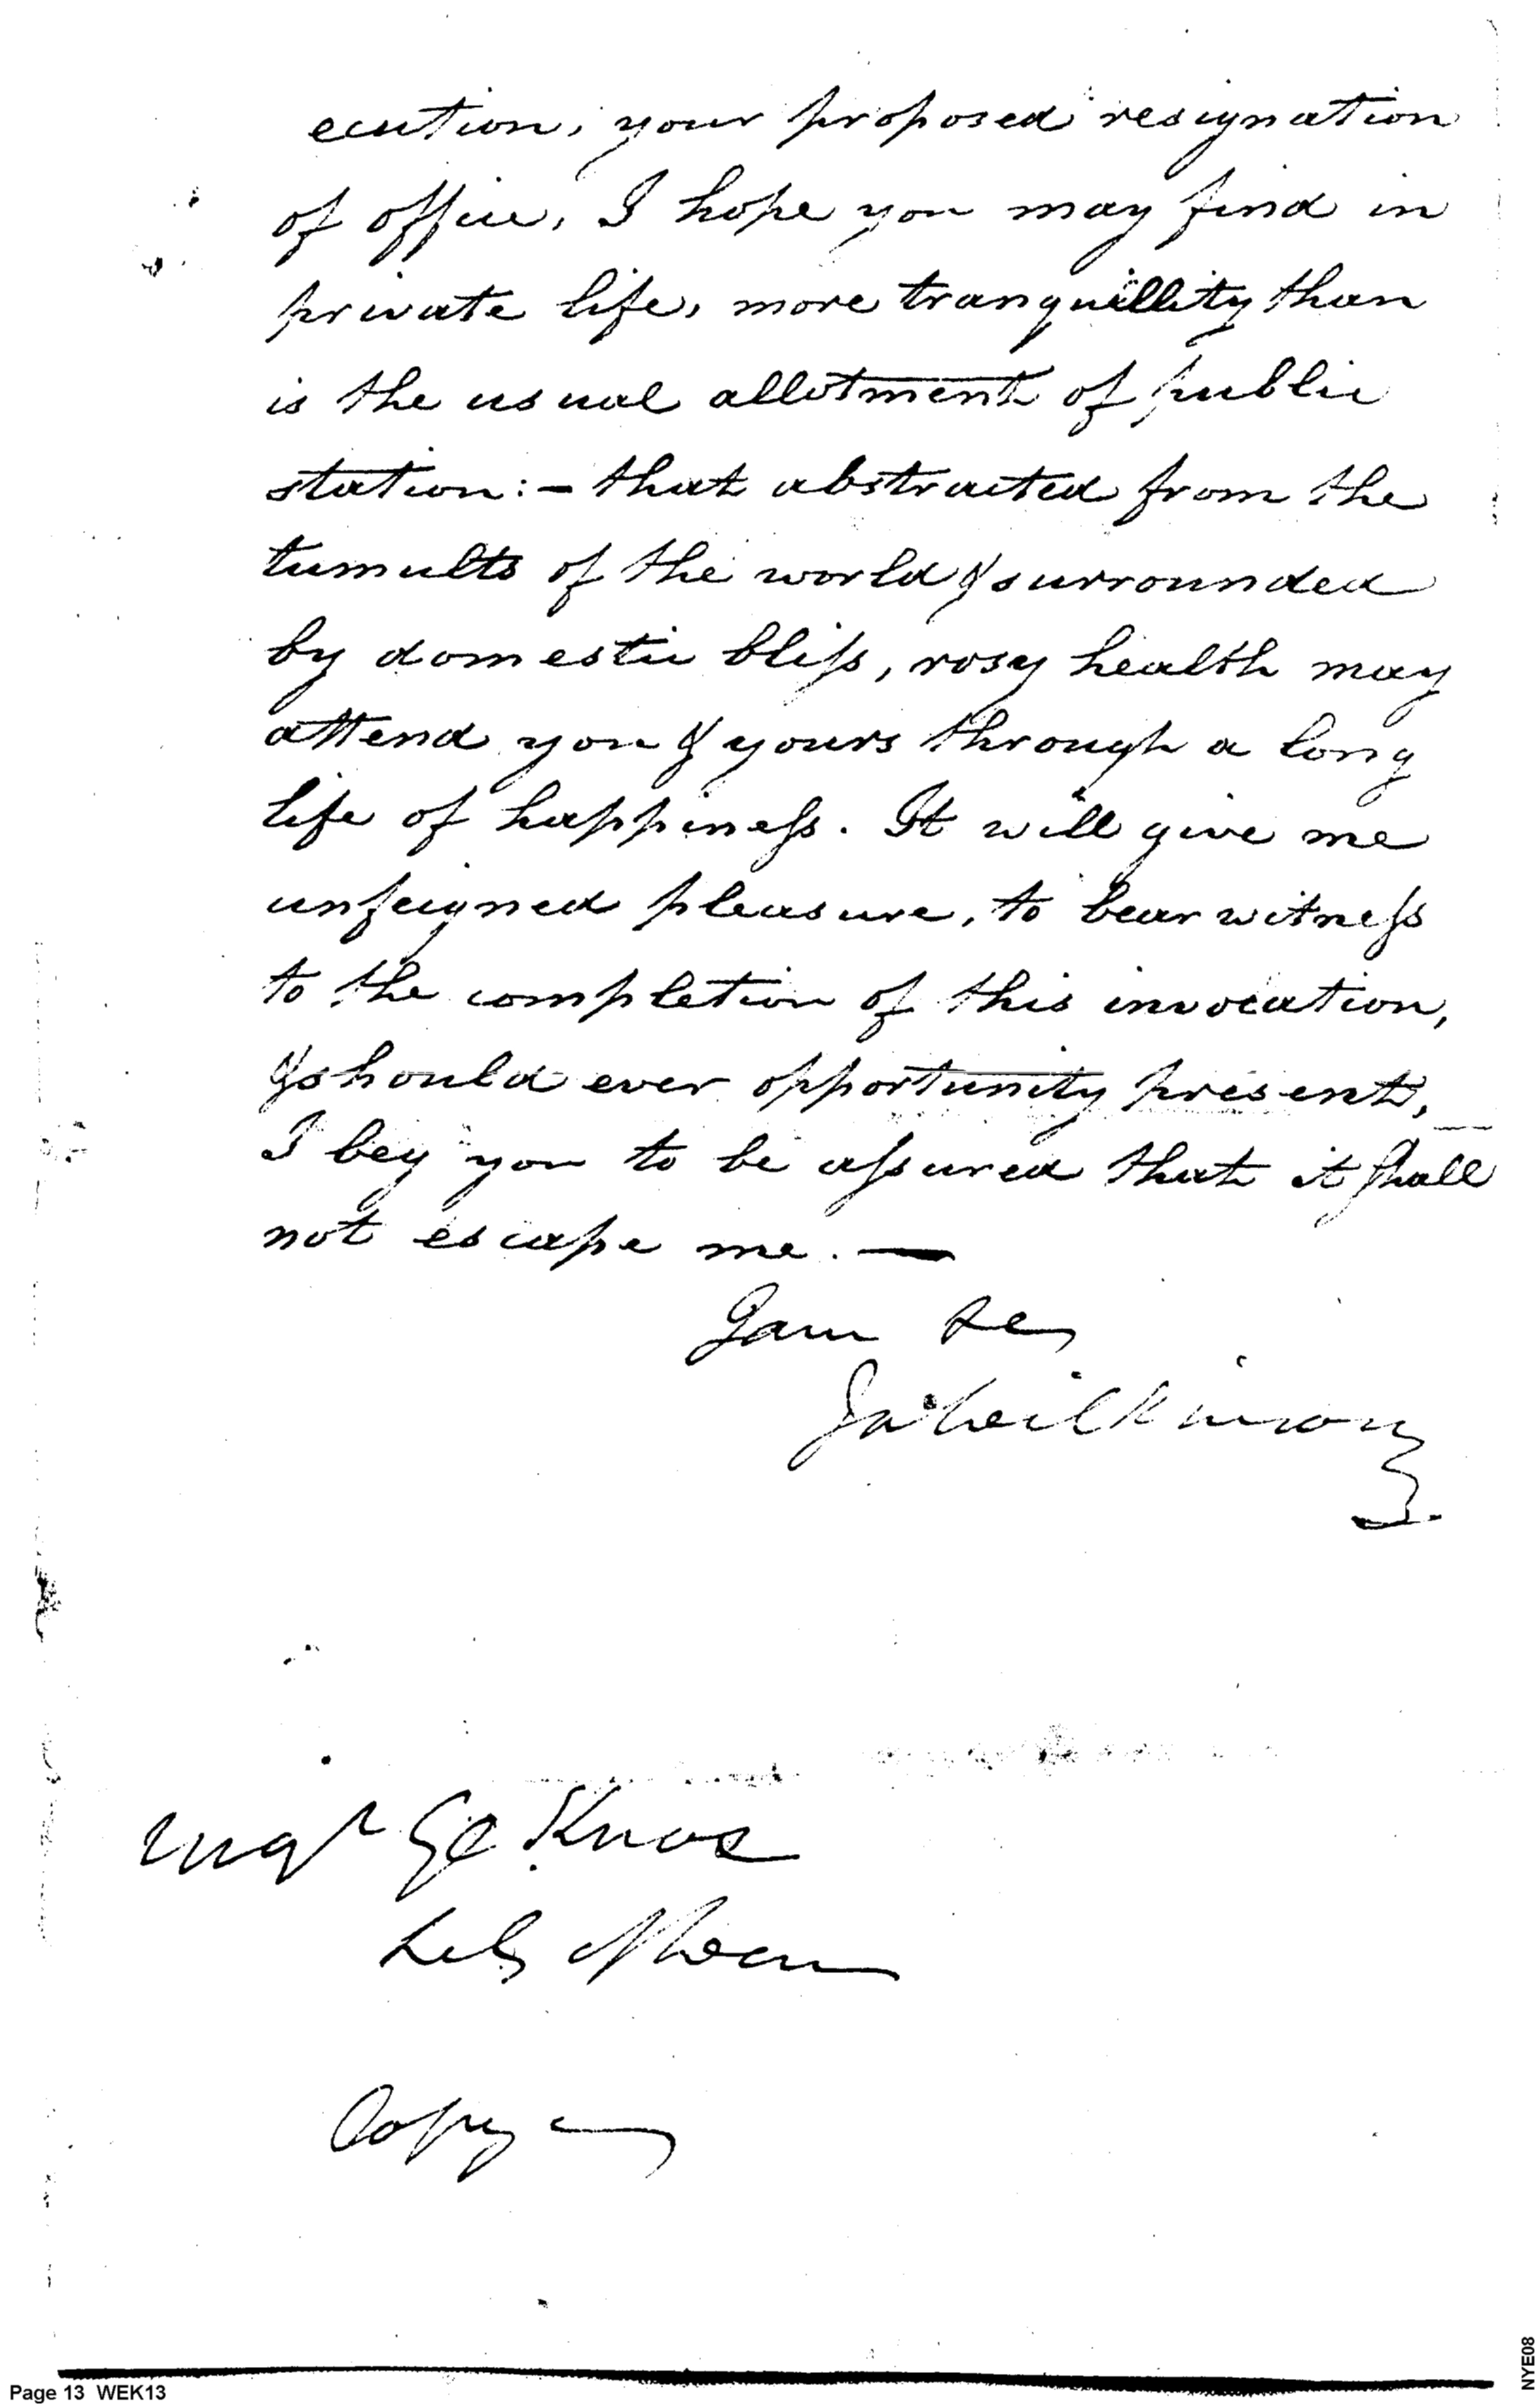 ecution, your proposed resignation
of office, I hope you may find in
private life, more tranquillity than
is the usual allotment of public
station:— that abstracted from the
tumults of the world & surrounded
by domestic bliſs, rosy health may
attend you & yours through a long
life of happineſs. It will give me
unfeigned pleasure, to bear witneſs
to the completion of this invocation,
& should ever opportunity present,
I beg you to be aſsured that it ſhall
not escape me. —
I am &c
Ja Wilkinson
Majr Gl Knox
Copy —
Page 13 WEK13
NYE08